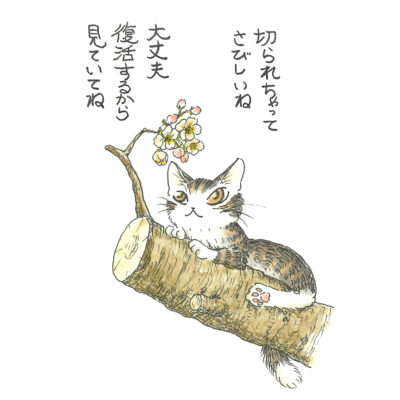 切られちゃって
さびしいね
大丈夫
復活するから
見ていてね